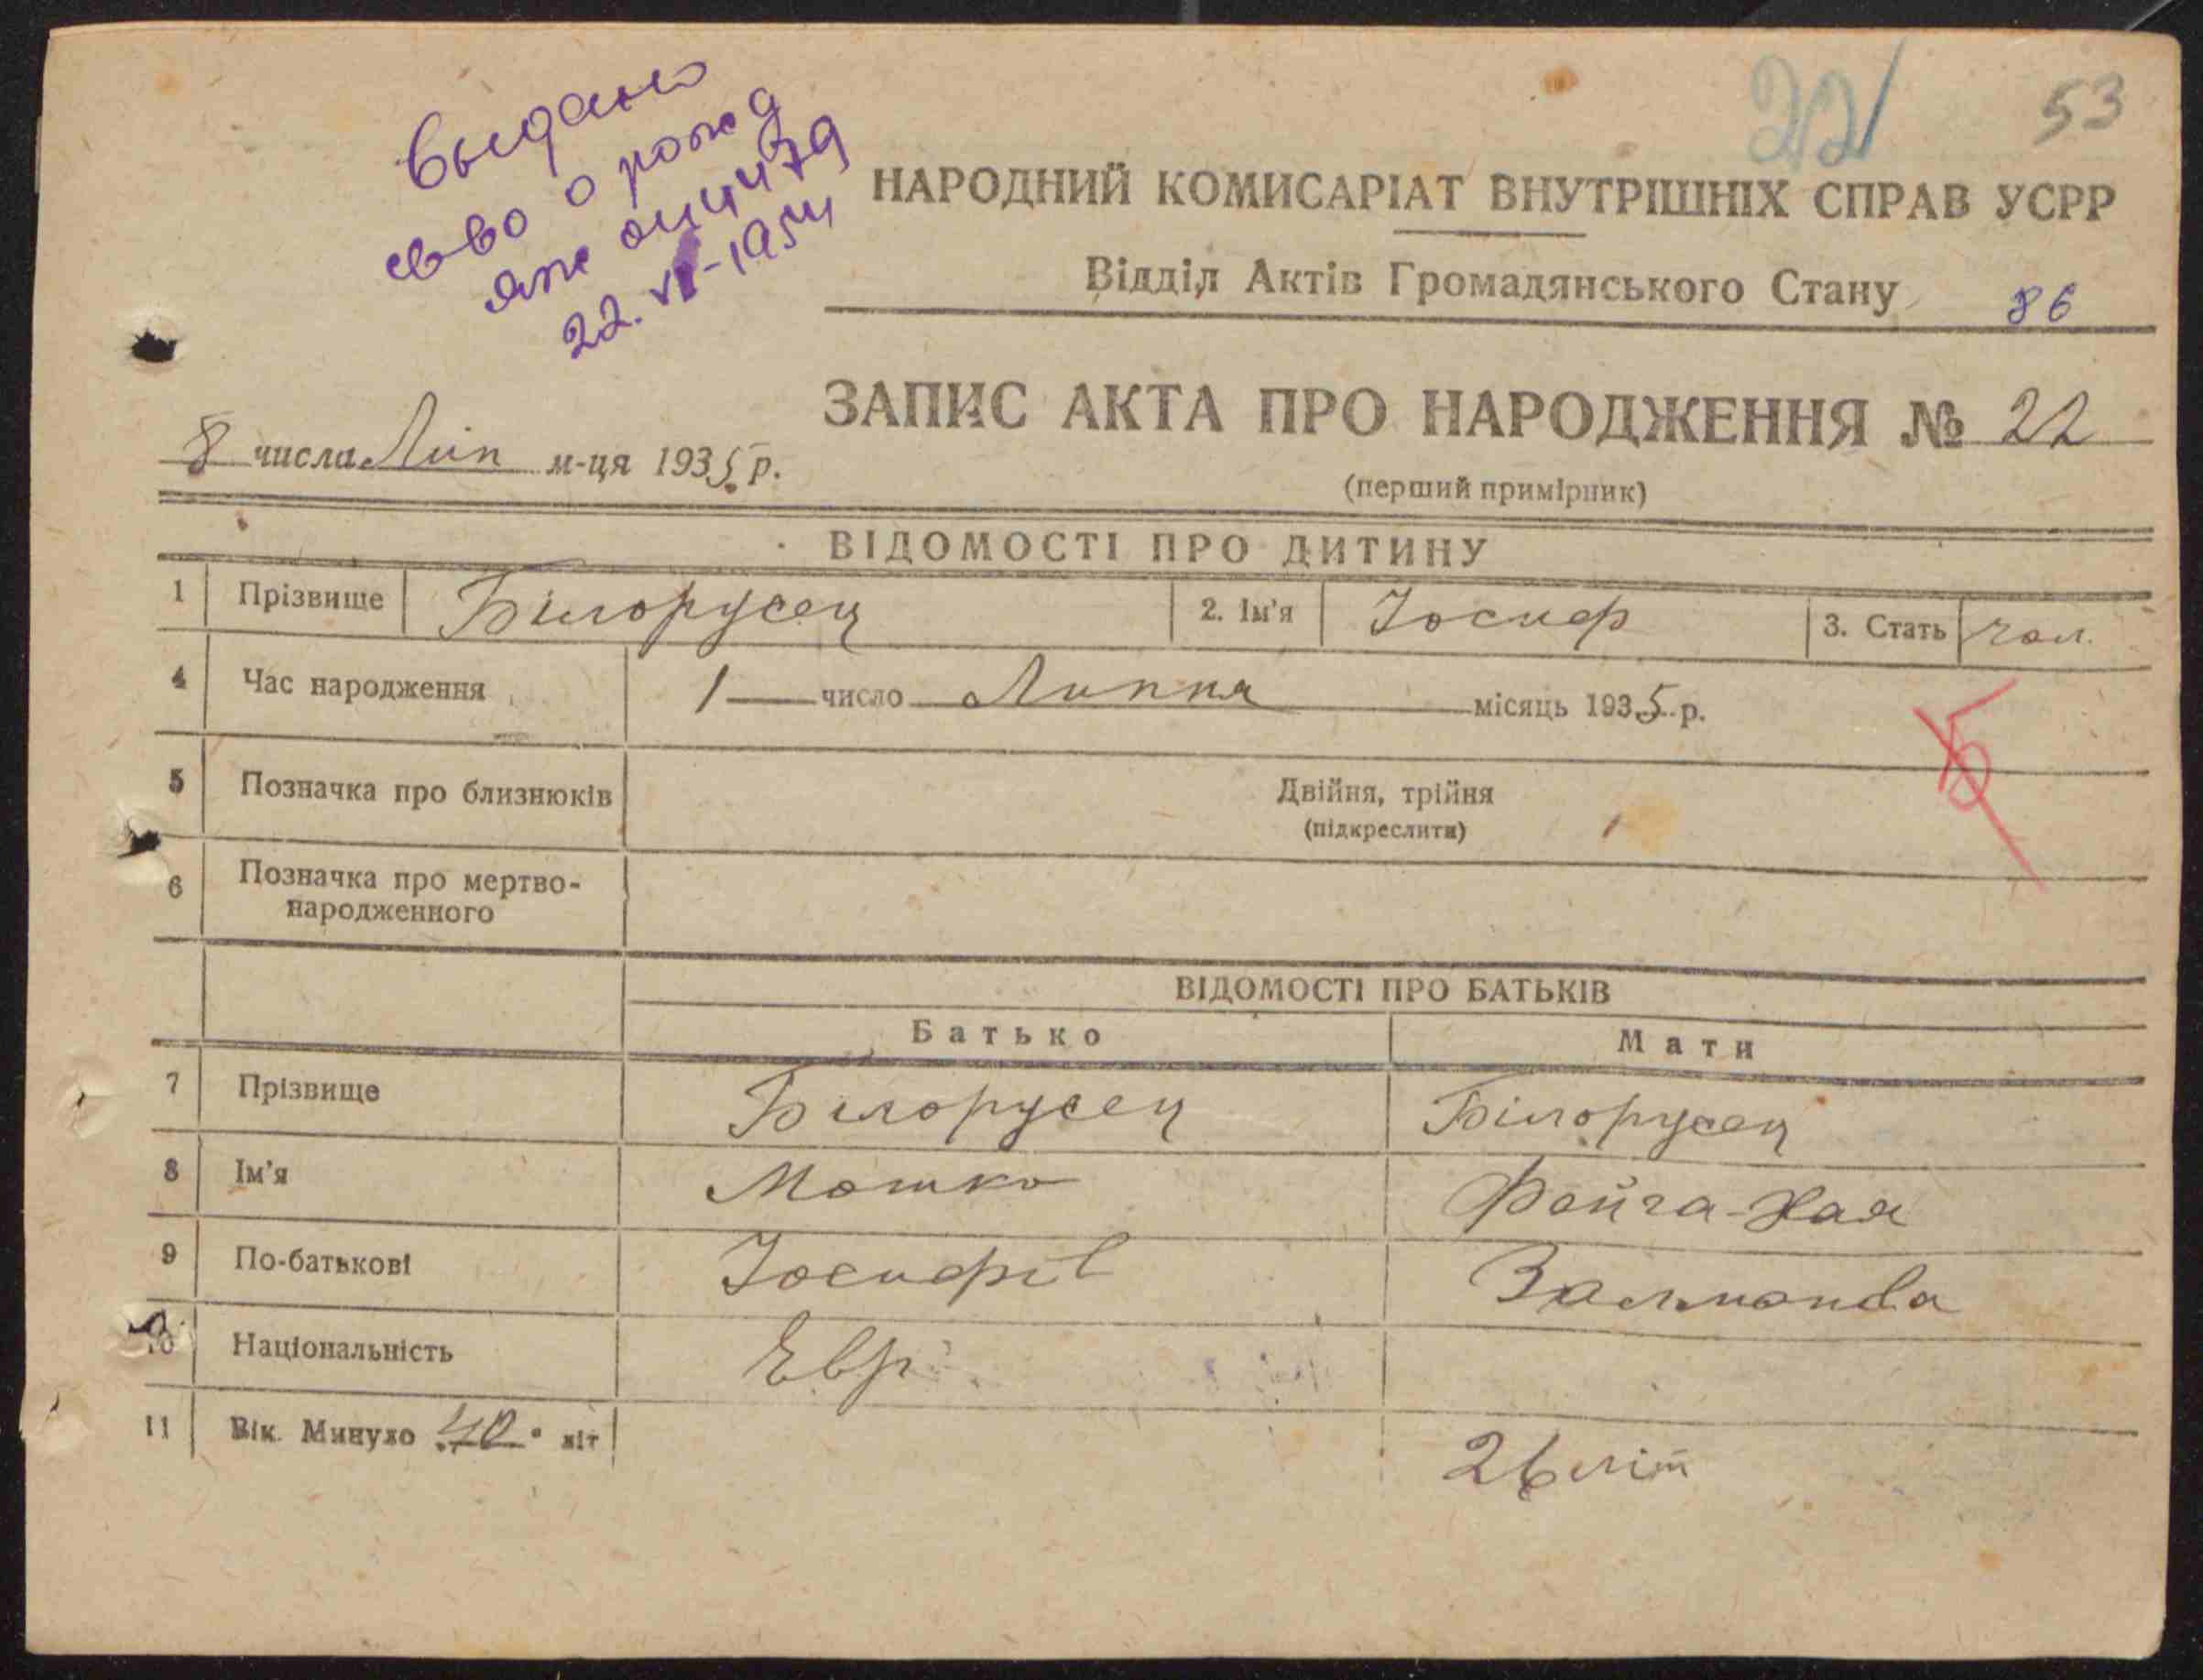 22
53
Выдано
св-во о рожд
22. VI-1954
НАРОДНИЙ КОМИСАРІАТ ВНУТРІШНІХ СПРАВ УСРР
Відділ Актів Громадянського Стану 86
ЗАПИС АКТА ПРО НАРОДЖЕННЯ № 22
8 числа Лип м-ця 1935 р.
(перший примірник)
ВІДОМОСТІ ПРО ДИТИНУ
1 Прізвище Білорусец 2. Ім'я Іосиф 3. Стать чол.
4 Час народження 1 число Липня місяць 1935 р.
5 Позначка про близнюків Двійня, трійня
(підкреслити)
6 Позначка про мертво-
народженного
ВІДОМОСТІ ПРО БАТЬКІВ
Батько Мати
7 Прізвище Білорусец Білорусец
8 Ім'я Мошко Фейга-Хая
9 По-батькові Іосифів Залманова
10 Національність Евр
11 Вік. Минуло 40 літ 26 літ